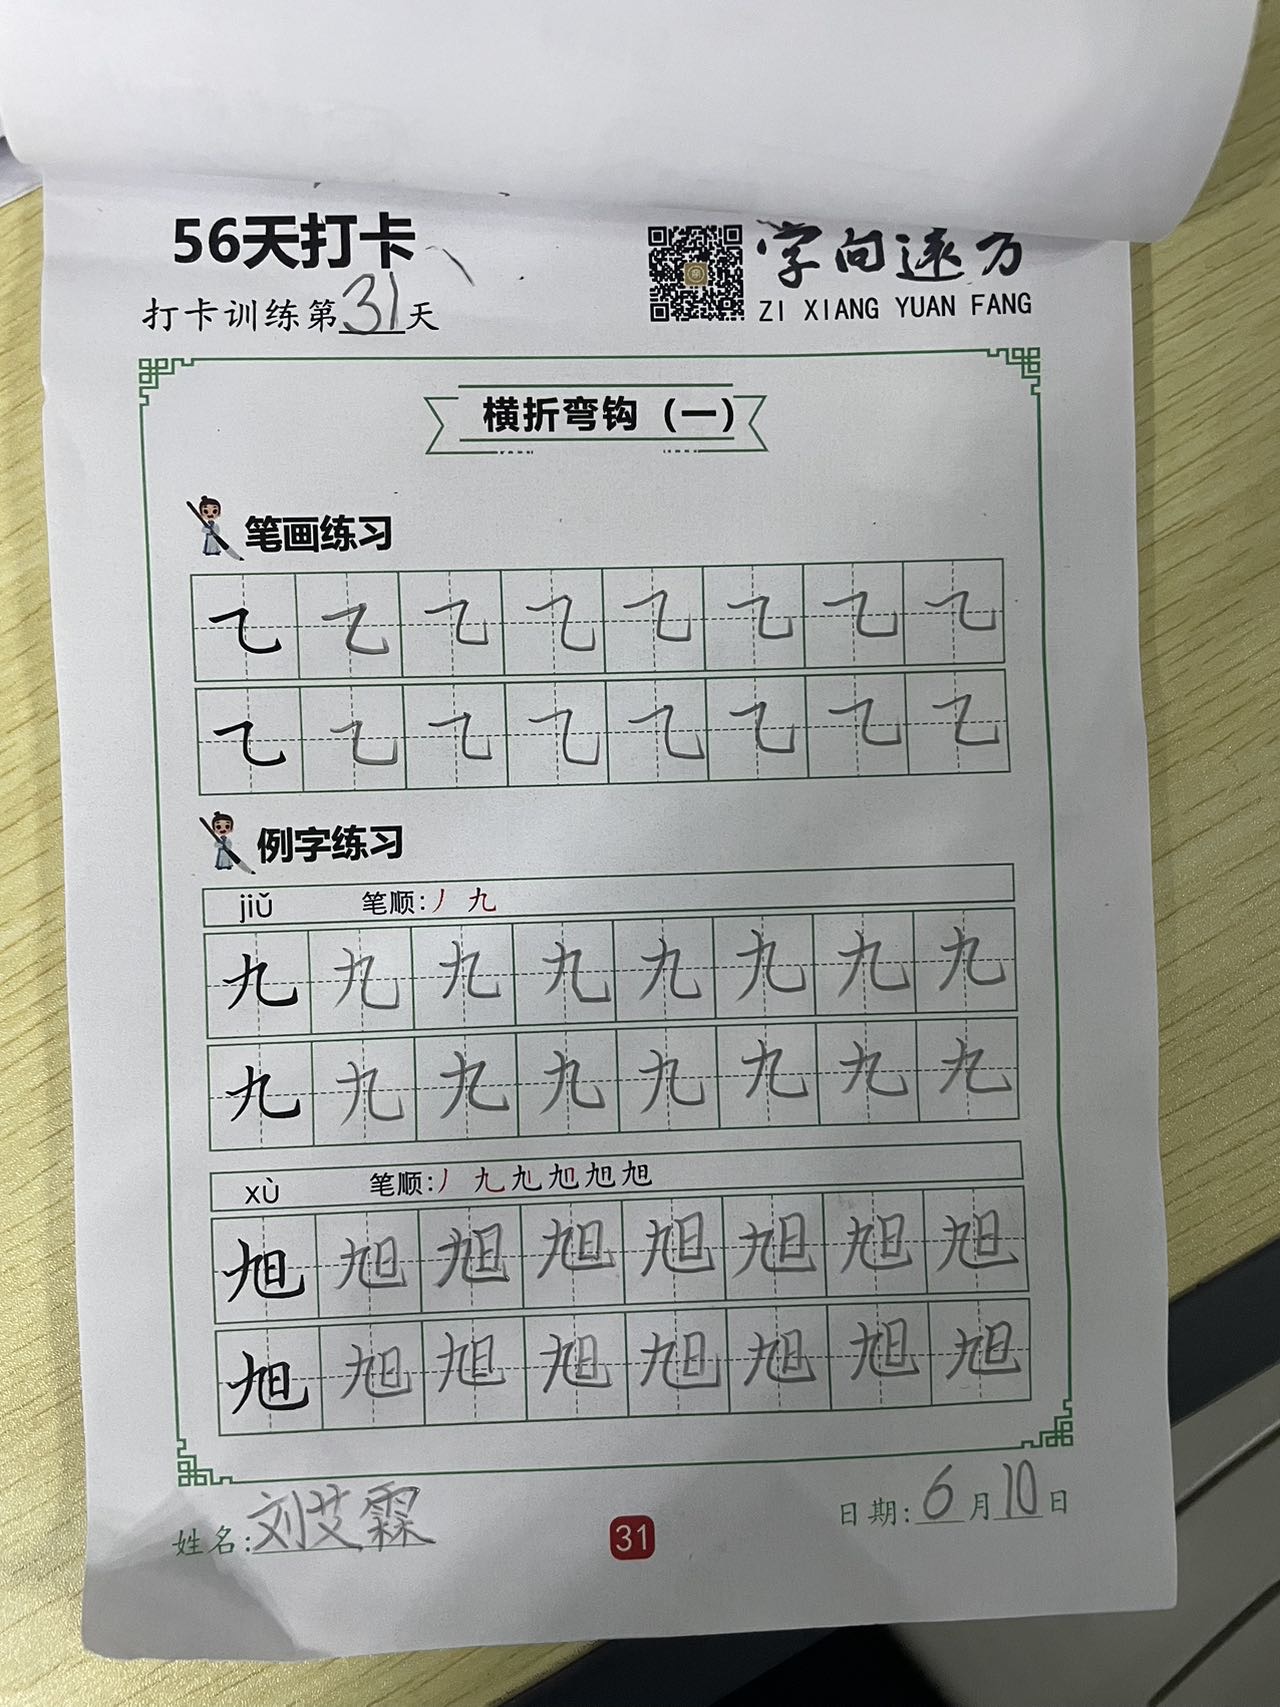 56天打卡
打卡训练第31天
字向远方
ZI XIANG YUAN FANG
横折弯钩（一）
笔画练习
㇈ ㇈ ㇈ ㇈ ㇈ ㇈ ㇈ ㇈
㇈ ㇈ ㇈ ㇈ ㇈ ㇈ ㇈ ㇈
例字练习
jiǔ 笔顺:丿 九
九 九 九 九 九 九 九 九
九 九 九 九 九 九 九 九
xù 笔顺:丿 九 旭 旭 旭
旭 旭 旭 旭 旭 旭 旭 旭
旭 旭 旭 旭 旭 旭 旭 旭
姓名:刘艾霖
31
日期:6月10日